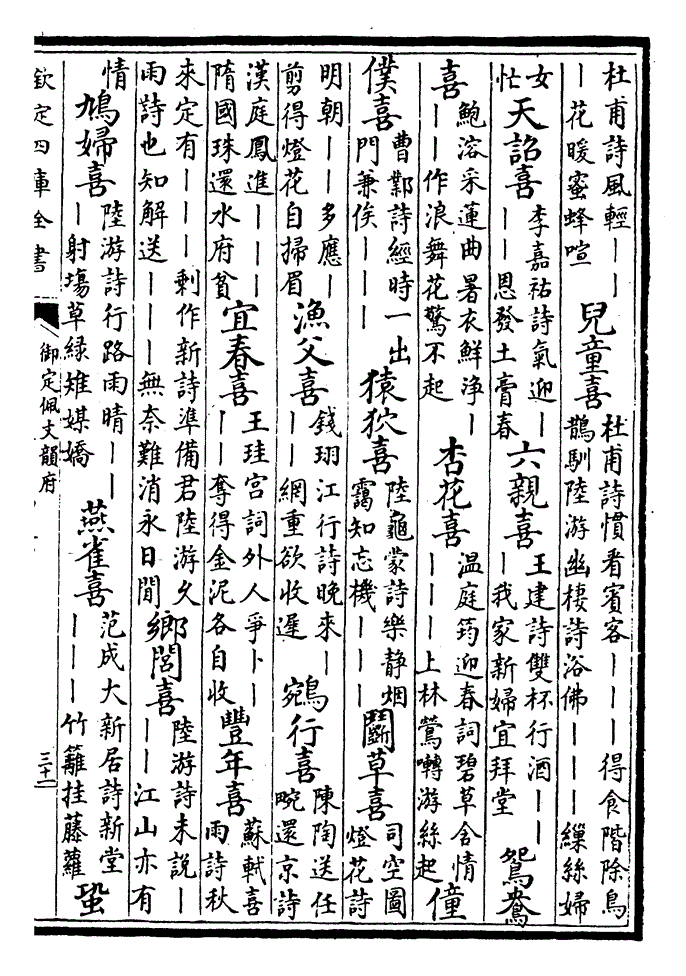 杜甫詩風輕｜｜
｜花暖蜜蜂喧
兒童喜
杜甫詩慣看賓客｜｜｜得食階除鳥
鵲馴陸游幽棲詩浴佛｜｜｜繰絲婦
女
忙
天詔喜
李嘉祐詩氣迎｜
｜｜恩發土膏春
六親喜
王建詩雙杯行酒｜｜
｜我家新婦宜拜堂
鴛鴦
喜
鮑溶采蓮曲暑衣鮮淨｜
｜｜作浪舞花驚不起
杏花喜
温庭筠迎春詞碧草含情
｜｜｜上林鶯囀游絲起
僮
僕喜
曹鄴詩經時一出
門兼俟｜｜｜
猿狖喜
陸龜蒙詩樂静烟
靄知忘機｜｜｜
鬭草喜
司空圖
燈花詩
明朝｜｜多應｜
剪得燈花自掃眉
漁父喜
錢珝江行詩晚來｜
｜｜網重欲收遲
鵷行喜
陳陶送任
畹還京詩
漢庭鳳進｜｜｜
隋國珠還水府貧
宜春喜
王珪宮詞外人爭卜｜
｜｜奪得金泥各自收
豐年喜
蘇軾喜
雨詩秋
來定有｜｜｜剩作新詩準備君陸游久
雨詩也知解送｜｜｜無奈難消永日閒
鄉閭喜
陸游詩未説｜
｜｜江山亦有
情
鳩婦喜
陸游詩行路雨晴｜｜
｜射塲草緑雉媒嬌
燕雀喜
范成大新居詩新堂
｜｜｜竹籬挂藤蘿
蟄
欽定四庫全書
御定佩文韻府
三十一